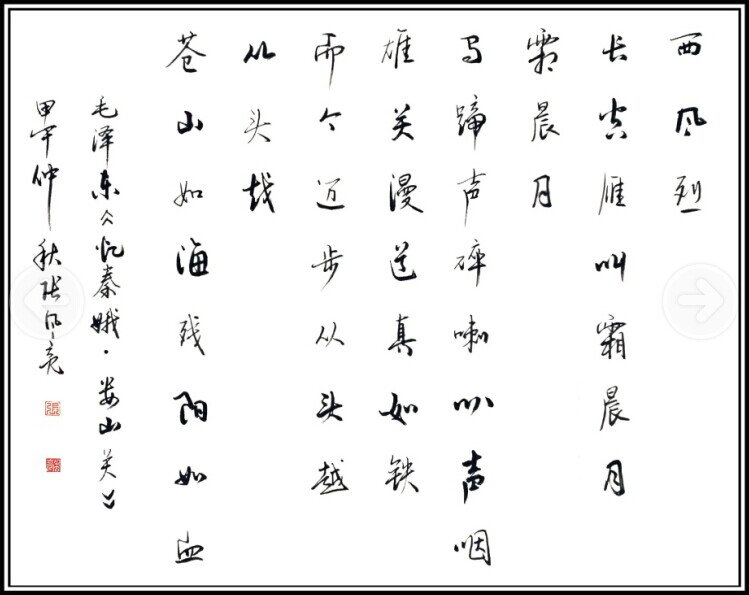 西风烈
长空雁叫霜晨月
霜晨月
马蹄声碎喇叭声咽
雄关漫道真如铁
而今迈步从头越
从头越
苍山如海残阳如血
毛泽东《忆秦娥·娄山关》
甲午仲秋张亮